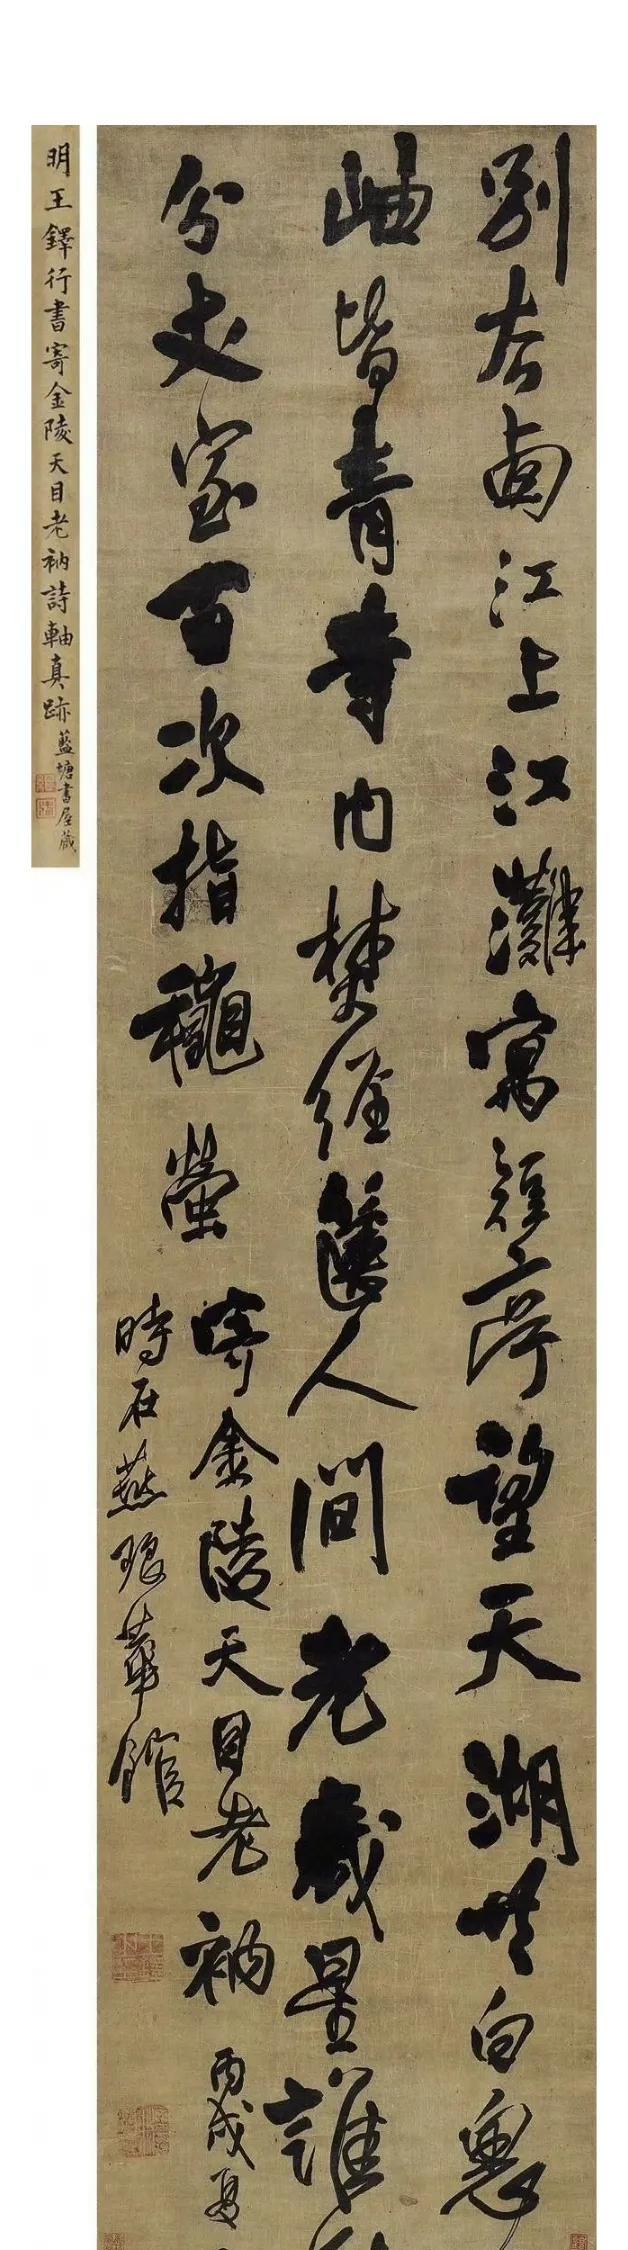 別南江上江灘寓短亭望天湖共白窻
岫皆青寺内梵經舊人間老歲星誰
分丈室百次指龝螢 寄金陵天目老衲 丙戌夏
時在燕琅華館
明王鐸行書寄金陵天目老衲詩軸真跡 藍塘書屋藏